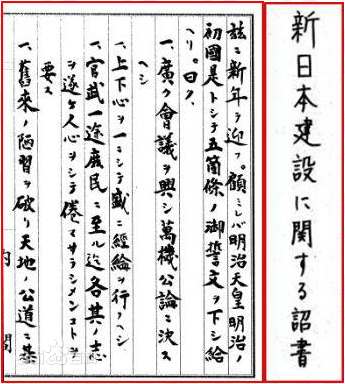 新日本建設に関する詔書
茲ニ新年ヲ迎フ。顧ミレバ明治天皇明治ノ
初國是トシテ五箇條ノ御誓文ヲ下シ給
ヘリ。曰ク、
一、廣ク會議ヲ興シ萬機公論ニ決ス
ヘシ
一、上下心ヲ一ニシテ盛ニ經綸ヲ行フヘシ
一、官武一途庶民ニ至ル迄各其ノ志
ヲ遂ケ人心ヲシテ倦マサラシメンコトヲ
要ス
一、舊來ノ陋習ヲ破リ天地ノ公道ニ基